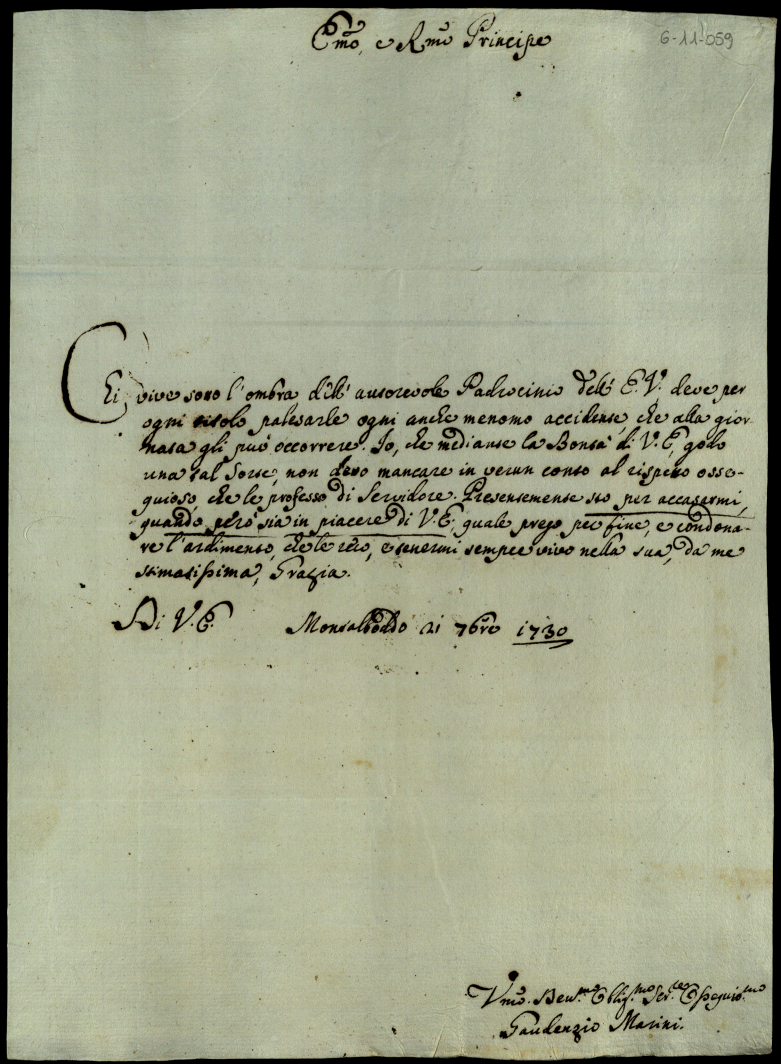 Emo, e Rmo Principe
6-11-059
Chi vive sotto l'ombra dell' autorevole Padrocinio dell' E.V. deve per
ogni titolo palesarle ogni anche menomo accidente, che alla gior-
nata gli può occorrere. Io, che mediante la Bontà di V.E, godo
una tal Sorte, non devo mancare in verun conto al rispetto osse-
quioso, che le professo di Servidore. Presentemente sto per accasarmi,
quando però sia in piacere di V.E, quale prego per fine, e condona-
re l'ardimento, che le reco, e tenermi sempre vivo nella sua, da me
stimatissima, Grazia.
Di V.E. Montalboddo 21 7bre 1730
Vmo. Devmo Obligmo Serre Ossequiomo
Gaudenzio Marini.